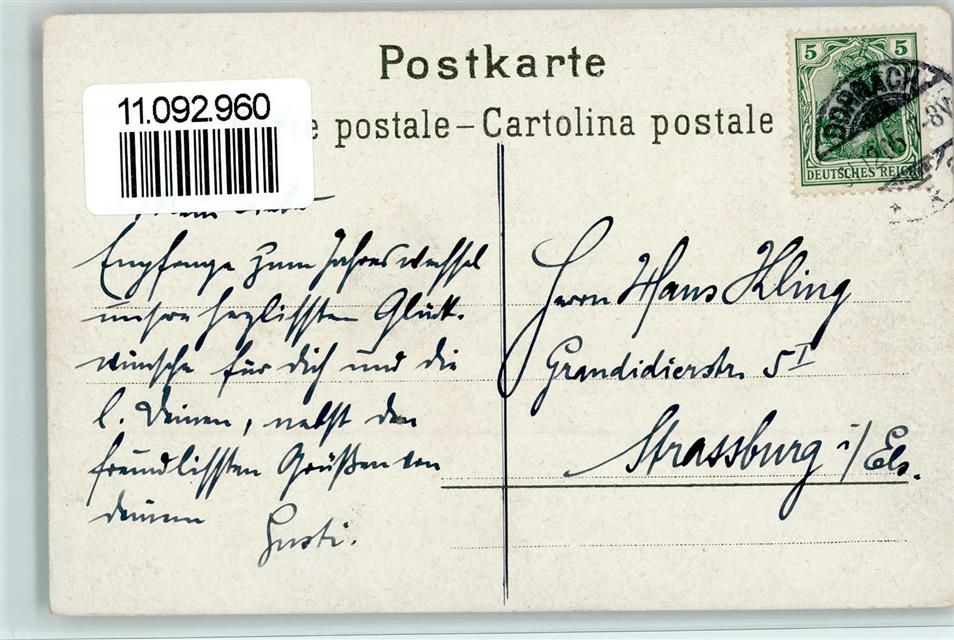 Postkarte
11.092.960
postale – Cartolina postale
5 5
DORNACH
12.05. 7-8V
DEUTSCHES REICH
Empfange zum Jahreswechsel
unsre herzlichsten Glück-
wünsche für dich und die
l. Deinen, nebst den
freundlichsten Grüßen von
deinem
Gusti.
Herrn Hans Kling
Grandidierstr. 5 I
Strassburg i/Els.